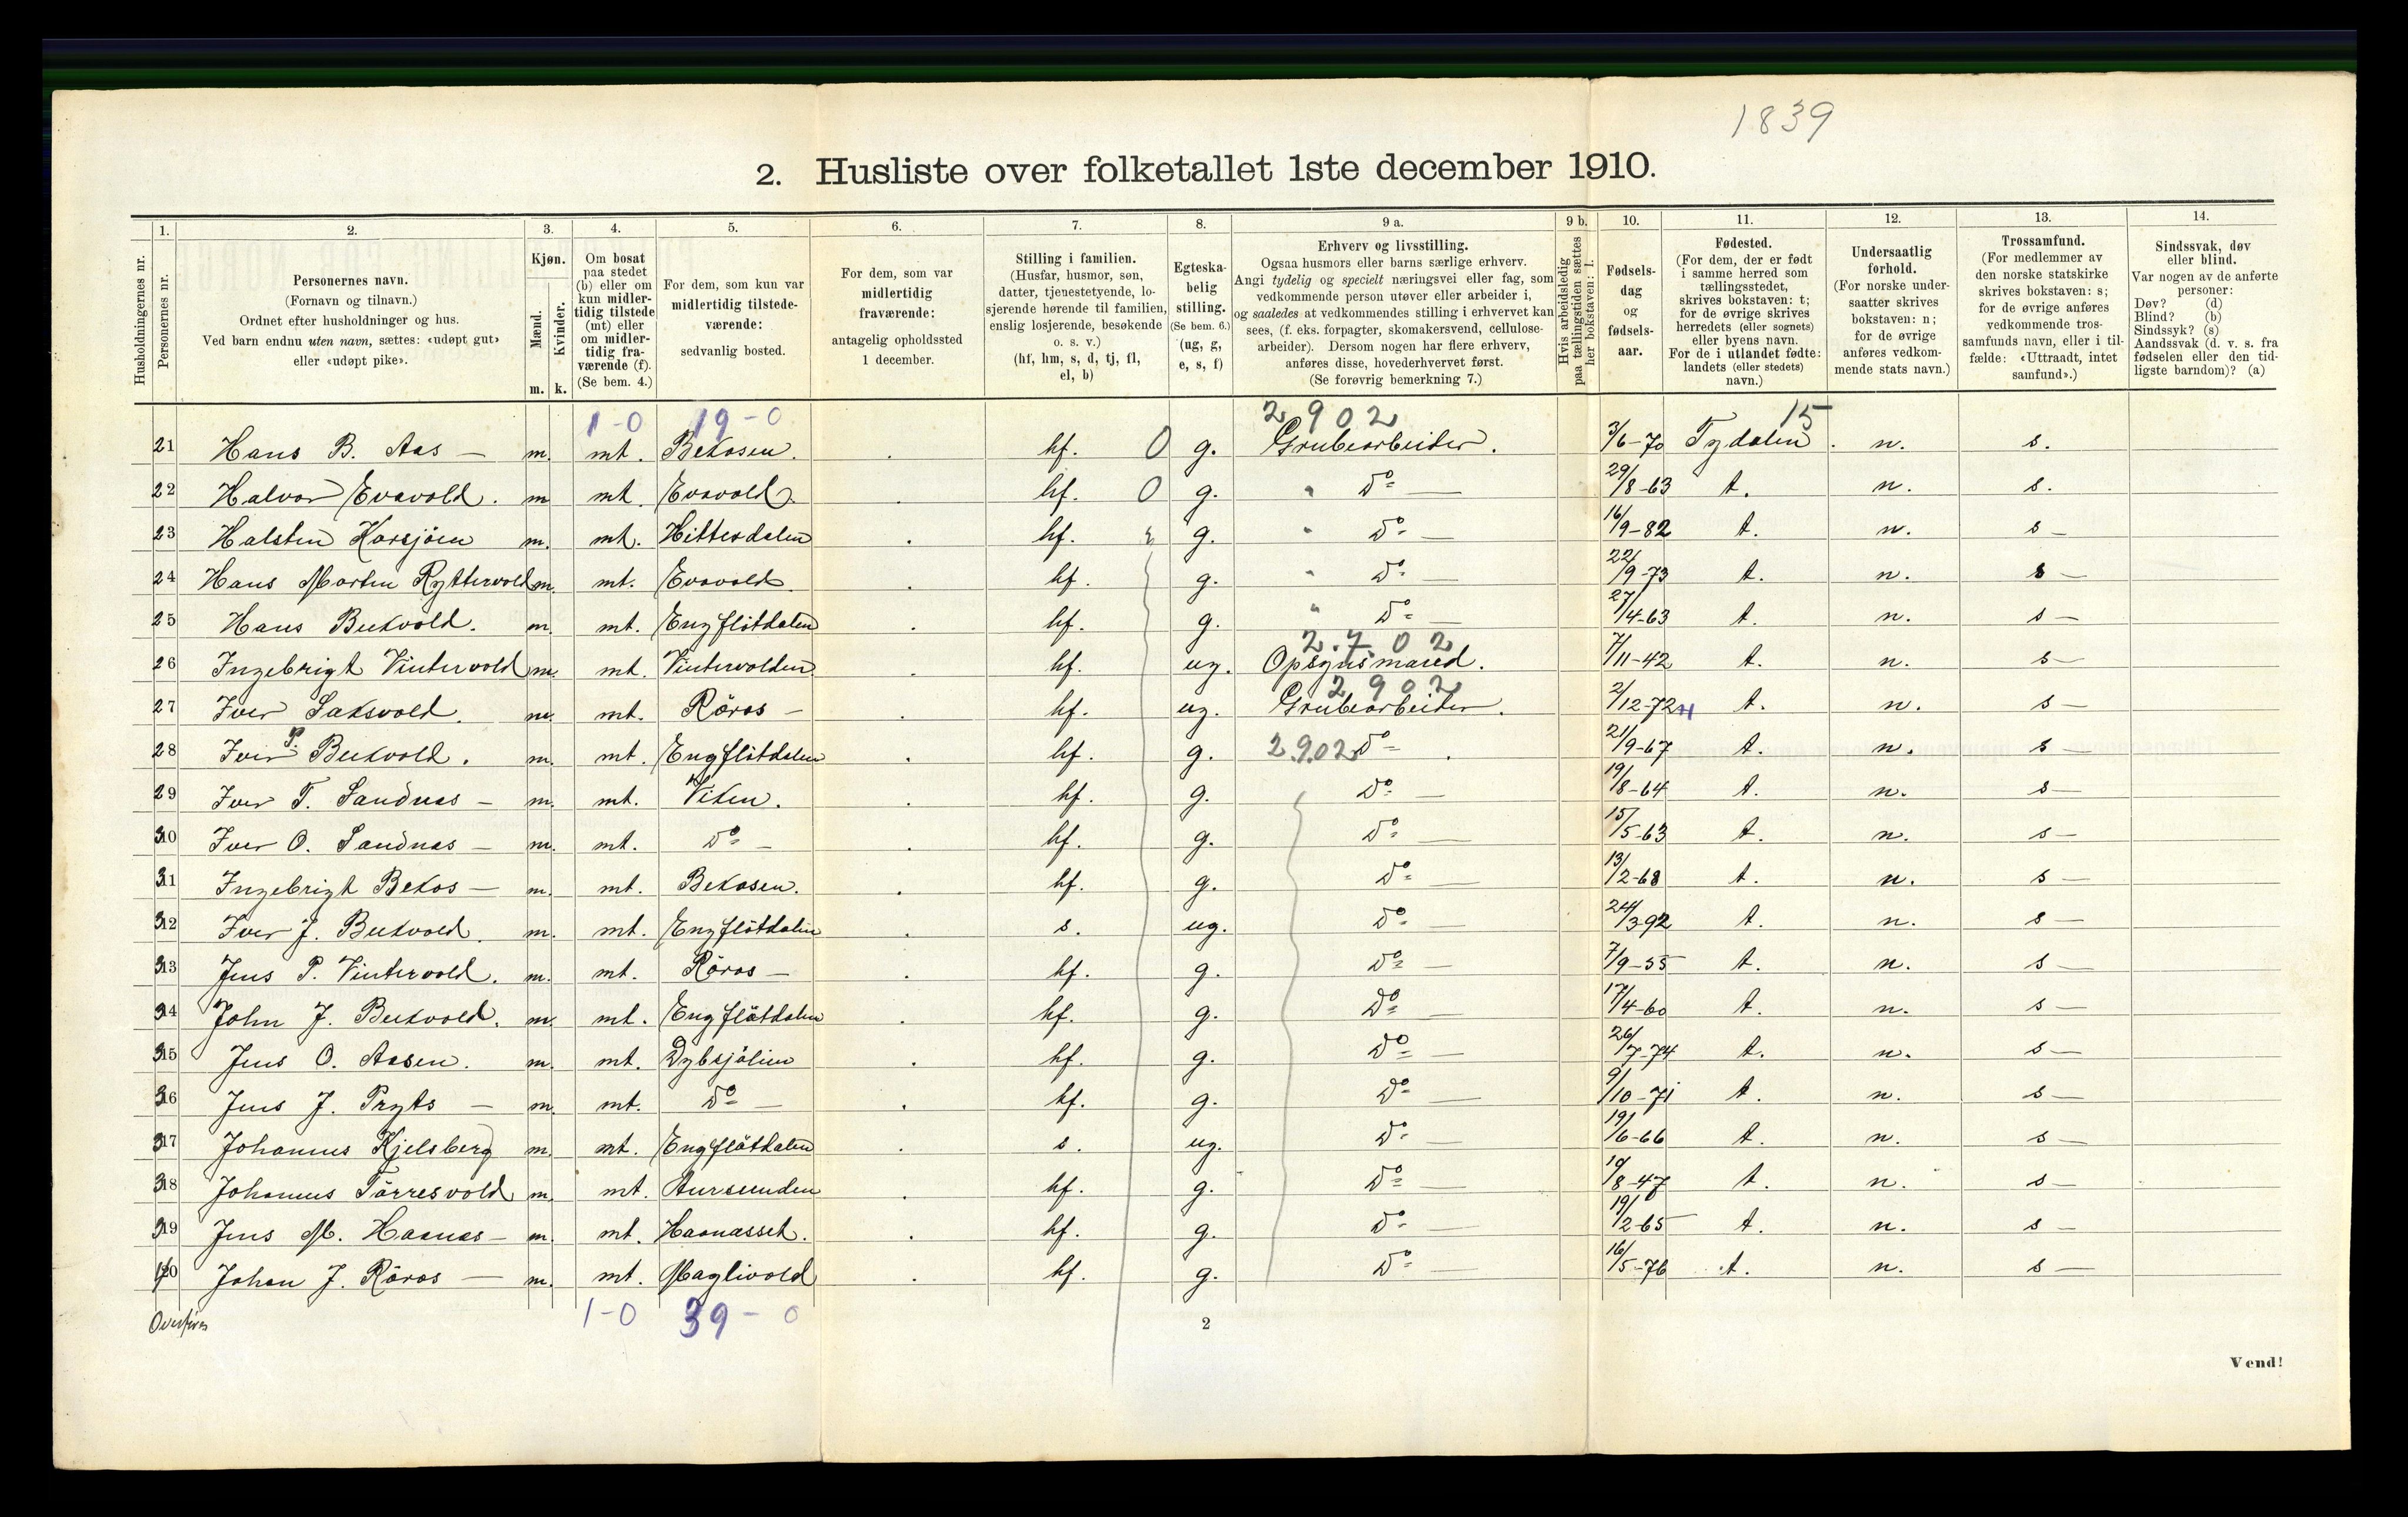 1839
2. Husliste over folketallet 1ste december 1910.
Husholdningernes nr.
1. Personernes nr.
2. Personernes navn. (Fornavn og tilnavn.) Ordnet efter husholdninger og hus. Ved barn endnu uten navn, sættes: «udøpt gut» eller «udøpt pike».
3. Kjøn. Mænd. m. Kvinder. k.
4. Om bosat paa stedet (b) eller om kun midlertidig tilstede (mt) eller om midlertidig fraværende (f). (Se bem. 4.)
5. For dem, som kun var midlertidig tilstedeværende: sedvanlig bosted.
6. For dem, som var midlertidig fraværende: antagelig opholdssted 1 december.
7. Stilling i familien. (Husfar, husmor, søn, datter, tjenestetyende, losjerende hørende til familien, enslig losjerende, besøkende o. s. v.) (hf, hm, s, d, tj, fl, el, b)
8. Egteskabelig stilling. (Se bem. 6.) (ug, g, e, s, f)
9 a. Erhverv og livsstilling. Ogsaa husmors eller barns særlige erhverv. Angi tydelig og specielt næringsvei eller fag, som vedkommende person utøver eller arbeider i, og saaledes at vedkommendes stilling i erhvervet kan sees, (f. eks. forpagter, skomakersvend, cellulosearbeider). Dersom nogen har flere erhverv, anføres disse, hovederhvervet først. (Se forøvrig bemerkning 7.)
9 b. Hvis arbeidsledig paa tællingstiden sættes her bokstaven: l.
10. Fødselsdag og fødselsaar.
11. Fødested. (For dem, der er født i samme herred som tællingsstedet, skrives bokstaven: t; for de øvrige skrives herredets (eller sognets) eller byens navn. For de i utlandet fødte: landets (eller stedets) navn.)
12. Undersaatlig forhold. (For norske undersaatter skrives bokstaven: n; for de øvrige anføres vedkommende stats navn.)
13. Trossamfund. (For medlemmer av den norske statskirke skrives bokstaven: s; for de øvrige anføres vedkommende trossamfunds navn, eller i tilfælde: «Uttraadt, intet samfund».)
14. Sindssvak, døv eller blind. Var nogen av de anførte personer: Døv? (d) Blind? (b) Sindssyk? (s) Aandssvak (d. v. s. fra fødselen eller den tidligste barndom)? (a)
1-0 19-0 2902 15
21 Hans B. Aas — m. mt. Bekosen. hf. 0 g. Grubearbeider. 3/6-70 Tydalen. n. s.
22 Halvor Evavold. m mt. Evavold. hf. 0 g. " Do — 29/8-63 t. n. s.
23 Halsten Korsjöen m. mt. Hittesdalen hf. g. " Do — 16/9-82 t. n. s —
24 Hans Morten Ryttervold m. mt. Evavold. hf. g. " Do — 22/9-73 t. n. s —
25 Hans Bukvold. m. mt. Engflötdalen hf. g. " Do — 27/4-63 t. n. s —
2.702
26 Ingebrigt Vintervold m. mt. Vintervolden hf. ug. Opsynsmand. 7/11-42 t. n. s —
2902
27 Iver Saksvold. m. mt. Röros — hf. ug. Grubearbeider. 2/12-72 t. n. s —
28 Iver P. Bukvold. m. mt. Engflötdalen hf. g. 2.902 Do 21/9-67 t. n. s —
29 Iver T. Sandnas — m. mt. Viken. hf. g. Do — 19/8-64 t. n. s —
310 Iver O. Sandnas — m. mt. Do — hf. g. Do — 15/5-63 t. n. s —
311 Ingebrigt Bekos — m. mt. Bekosen. hf. g. Do — 13/2-68 t. n. s —
312 Iver J. Bukvold. m. mt. Engflötdalen s. ug. Do — 24/3-92 t. n. s —
313 Jens P. Vintervold. m. mt. Röros — hf. g. Do — 7/9-55 t. n. s —
314 John J. Bukvold. m. mt. Engflötdalen hf. g. Do 17/4-60 t. n. s —
315 Jens O. Aasen. m. mt. Dybsjölien hf. g. Do — 26/7-74 t. n. s —
316 Jens J. Pryts — m. mt. Do — hf. g. Do — 9/10-71 t. n. s —
317 Johannes Kjelsberg m. mt. Engflötdalen s. ug. Do — 19/6-66 t. n. s —
318 Johannes Törresvold m. mt. Aursunden hf. g. Do — 10/8-47 t. n. s —
319 Jens M. Haanas — m. mt. Haanasset. hf. g. Do — 19/2-65 t. n. s —
20 Johan J. Röros — m. mt. Maglivold hf. g. Do — 16/5-76 t. n. s —
Overföres 1-0 39-0
2
Vend!